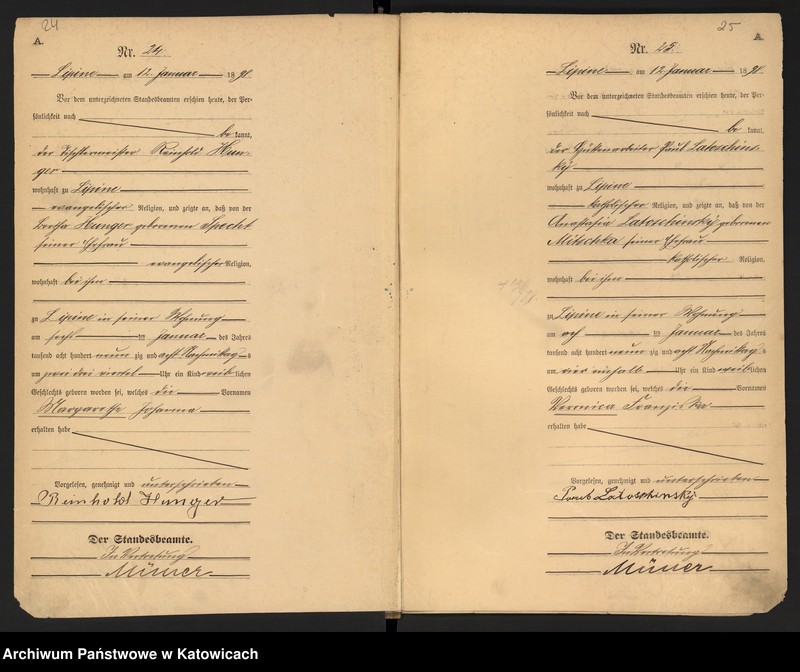 24
A.
Nr. 24.
Lipine am 12. Januar 1898.
Vor dem unterzeichneten Standesbeamten erschien heute, der Per-
sönlichkeit nach
be kannt,
der Tischlermeister Reinhold Hun-
ger
wohnhaft zu Lipine
evangelischer Religion, und zeigte an, daß von der
Hunger geborenen Specht
seiner Ehefrau
evangelischer Religion,
wohnhaft bei ihm
zu Lipine in seiner Wohnung
am sechs ten Januar des Jahres
tausend acht hundert neun zig und acht Nachmittags
um zwei drei viertel Uhr ein Kind weib lichen
Geschlechts geboren worden sei, welches die Vornamen
Margarethe Johanna
erhalten habe
Vorgelesen, genehmigt und unterschrieben
Reinhold Hunger
Der Standesbeamte.
In Vertretung
Müller
25
A.
Nr. 25.
Lipine am 12. Januar 1898.
Vor dem unterzeichneten Standesbeamten erschien heute, der Per-
sönlichkeit nach
be kannt,
der Hüttenarbeiter Paul Latoschins-
ky
wohnhaft zu Lipine
katholischer Religion, und zeigte an, daß von der
Anastasia Latoschinsky geborenen
Mitschka seiner Ehefrau
katholischer Religion,
wohnhaft bei ihm
zu Lipine in seiner Wohnung
am ach ten Januar des Jahres
tausend acht hundert neun zig und acht Nachmittags
um vier einhalb Uhr ein Kind weib lichen
Geschlechts geboren worden sei, welches die Vornamen
Veronica Franziska
erhalten habe
Vorgelesen, genehmigt und unterschrieben
Paul Latoschinsky
Der Standesbeamte.
In Vertretung
Müller
Archiwum Państwowe w Katowicach